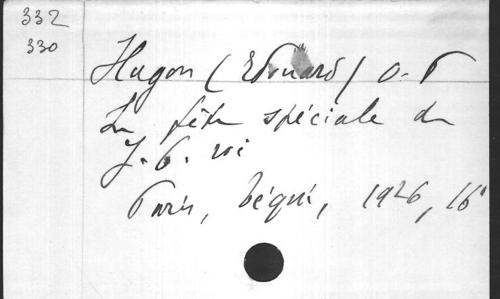 332
330
Hugon (Edouard) O.P
La fête spéciale du
J. C. roi
Paris, Téqui, 1926, 16°